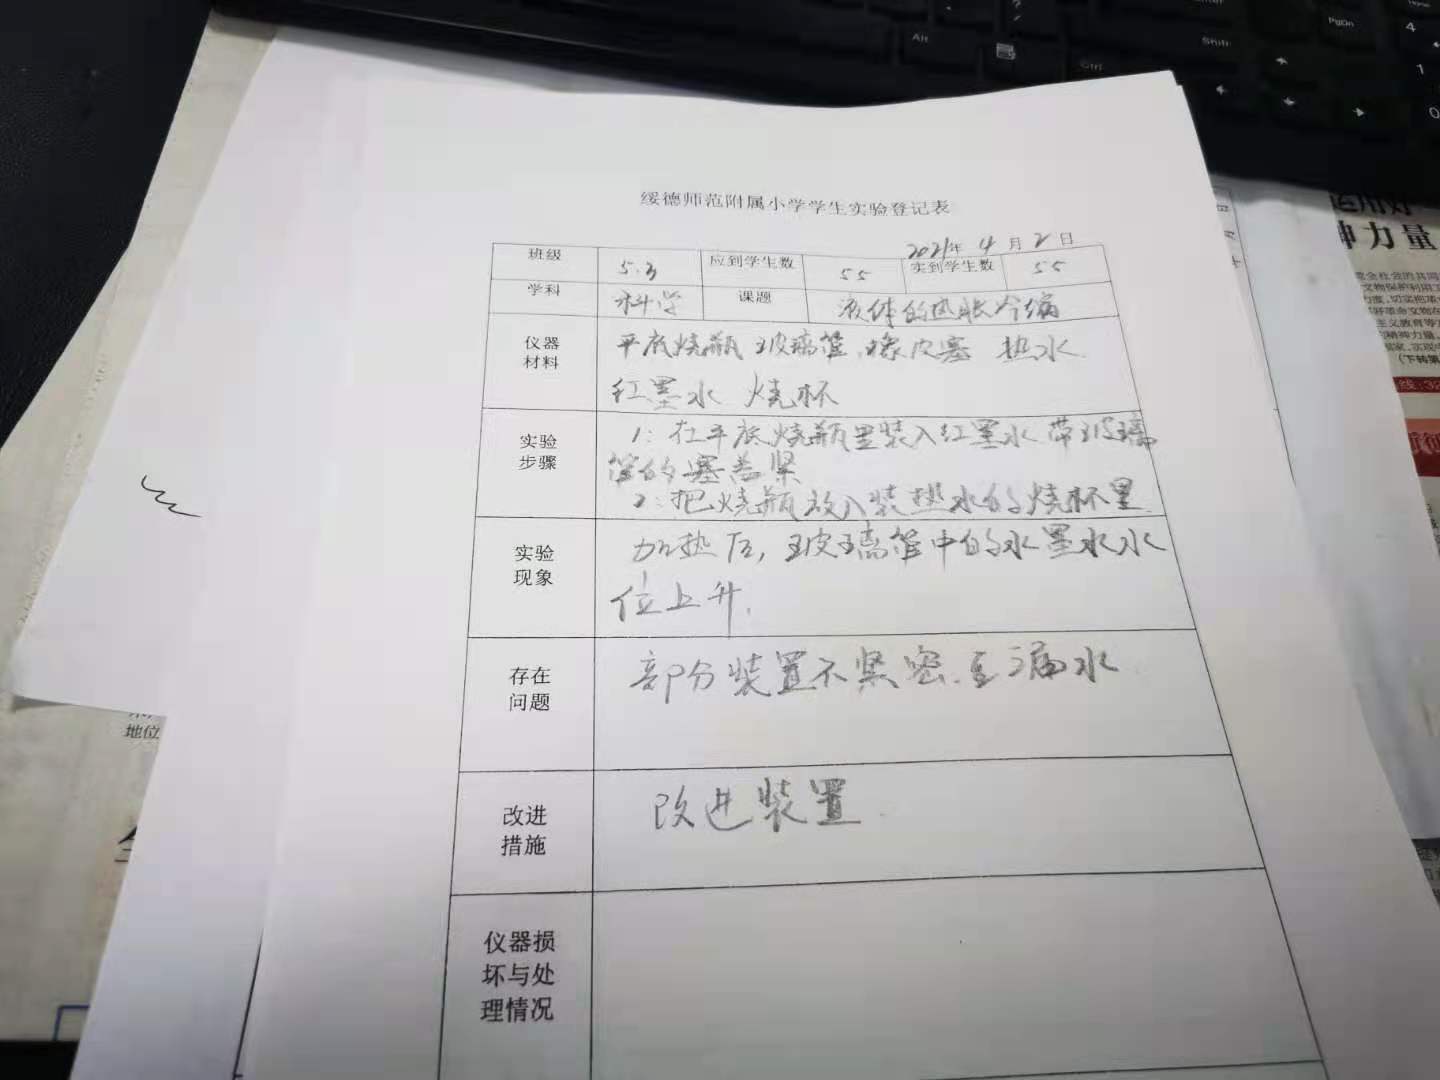 绥德师范附属小学学生实验登记表
2021年 4 月 2 日
班级 5.3 应到学生数 55 实到学生数 55
学科 科学 课题 液体的热胀冷缩
仪器
材料
平底烧瓶 玻璃管、橡皮塞 热水
红墨水 烧杯
实验
步骤
1:在平底烧瓶里装入红墨水 带玻璃
管的塞盖紧
2:把烧瓶放入装热水的烧杯里
实验
现象
加热后,玻璃管中的水墨水水
位上升.
存在
问题
部分装置不紧密 漏水
改进
措施
改进装置.
仪器损
坏与处
理情况
地位
神力量
(下转第
Alt
Ctrl
Shift
PgDn